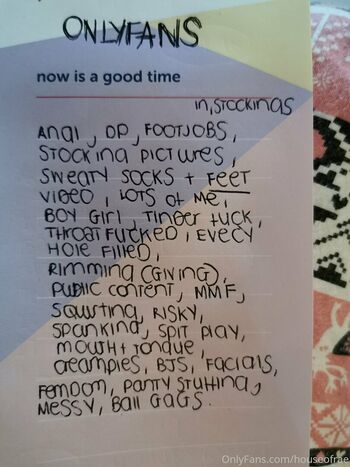 ONLYFANS
now is a good time
IN, STOCKINGS
ANAL, DP, FOOTJOBS,
STOCKING PICTURES,
SWEATY SOCKS + FEET
VIDEO, LOTS OF ME,
BOY GIRL, TINDER FUCK,
THROAT FUCKED, EVERY
HOLE FILLED,
RIMMING (GIVING),
PUBLIC CONTENT, MMF,
SQUIRTING, RISKY,
SPANKING, SPIT PLAY,
MOUTH + TONGUE,
CREAMPIES, BJS, FACIALS,
FEMDOM, PANTY STUFFING,
MESSY, BALL GAGS.
OnlyFans.com/houseofrae